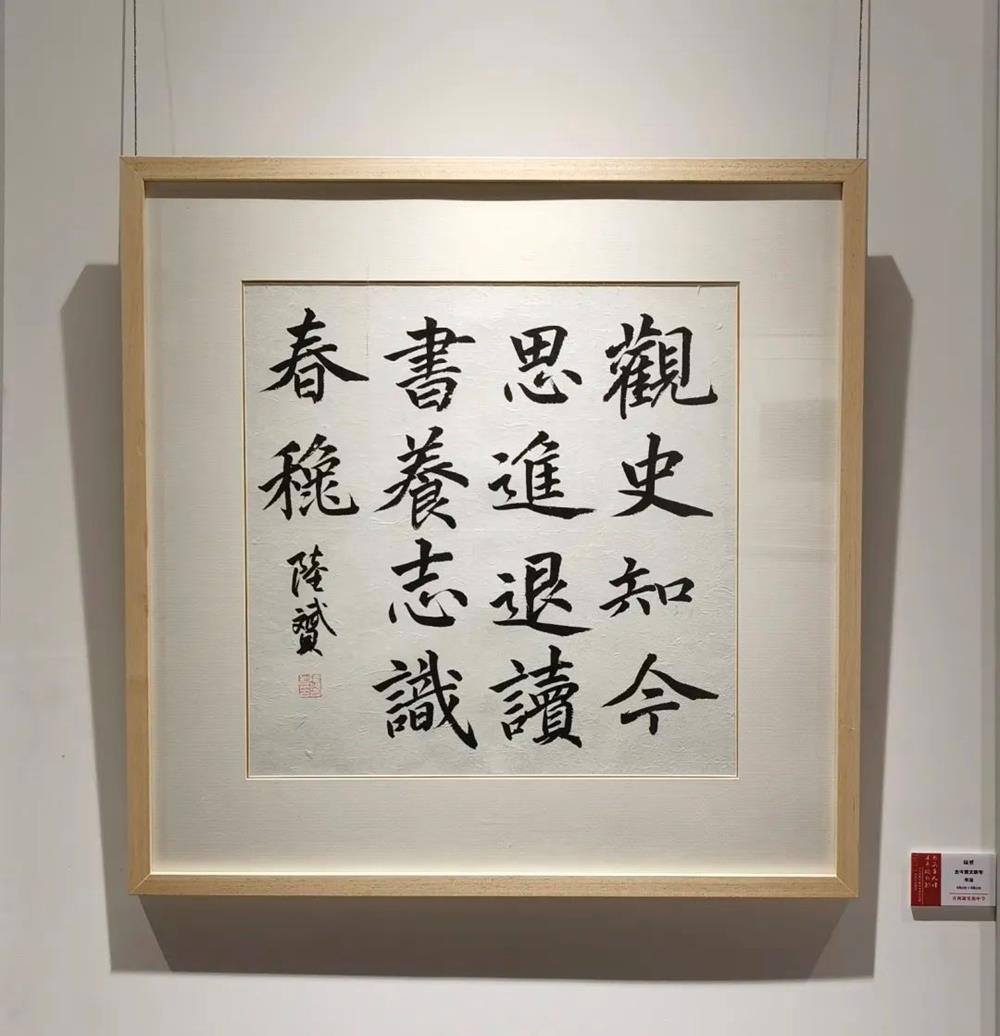 觀史知今
思進退讀
書養志識
春穐 陸贇